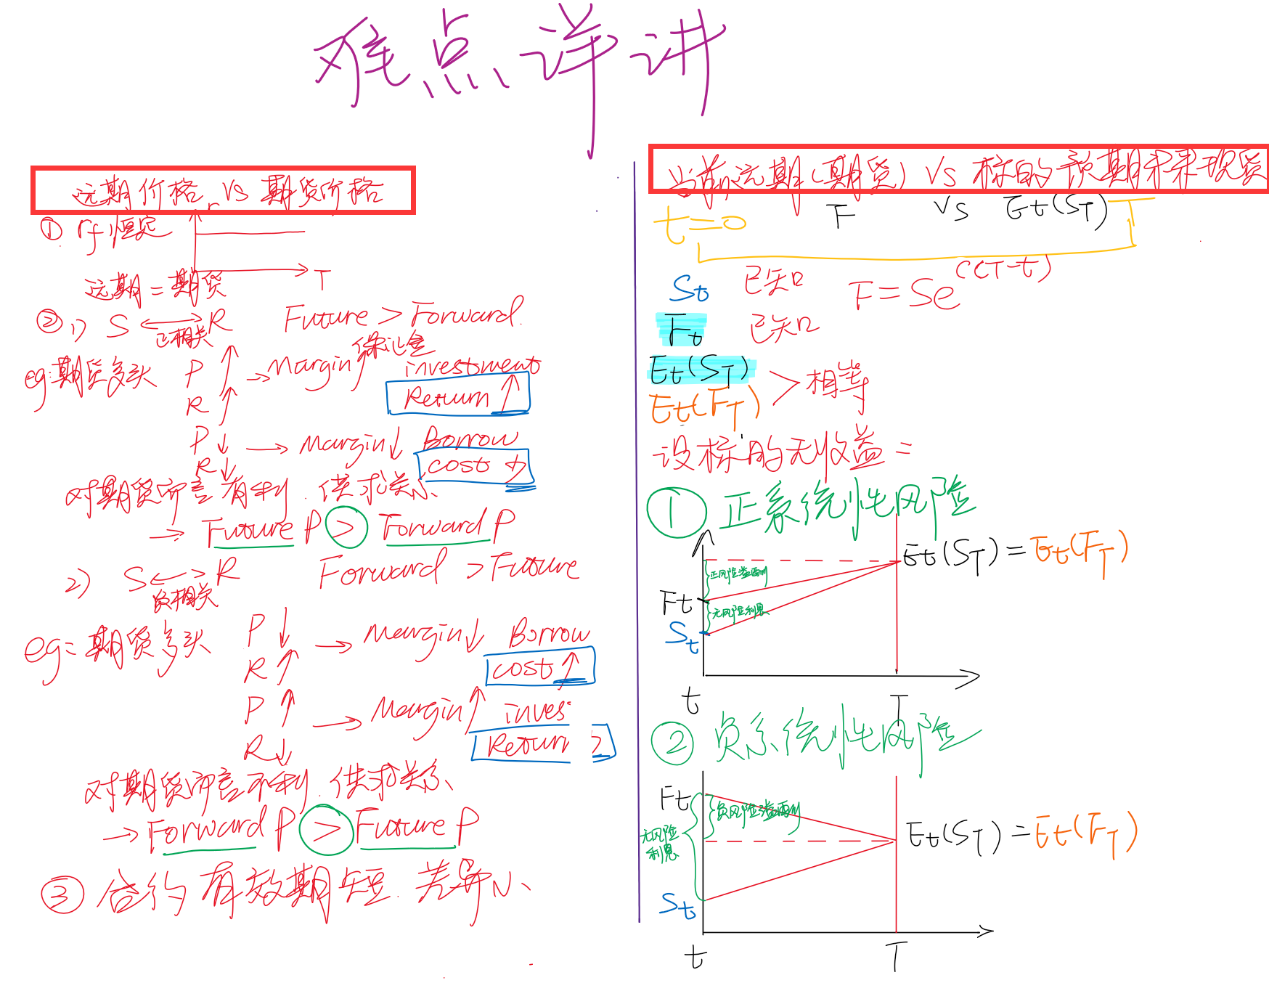 难点详讲
远期价格 VS 期货价格
① rf恒定
r
T
远期=期货
② 1) S ⟷ R Future > Forward
正相关
eg:期货多头 P↑ → Margin↑ 保证金 investment
R↑ Return↑
P↓ → Margin↓ Borrow
R↓ cost↓
对期货而言有利.供求关系
→ Future P > Forward P
2) S ⟷ R Forward > Future
负相关
eg:期货多头 P↓ → Margin↓ Borrow
R↑ cost↑
P↑ → Margin↑ inves
R↓ Return
对期货而言不利.供求关系
→ Forward P > Future P
③ 合约有效期短.差异小
当前远期(期货) VS 标的预期未来现货
t=0 F VS Et(ST)
St 已知 F=Se^(c(T-t)
Ft 已知
Et(ST)
> 相等
Et(FT)
设标的无收益=
① 正系统性风险
Et(ST)=Et(FT)
正风险溢酬
Ft
无风险利息
St
t T
② 负系统性风险
Ft
负风险溢酬
无风险
利息
Et(ST)=Et(FT)
St
t T